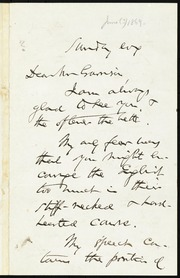 Sunday evg
Dear Mr Garrison,
I am always
glad to see you, &
the oftener the better.
My only fear was
that you might en-
courage the English
too much in their
stiff-necked & hard-
hearted course.
My speech con-
tains the points I